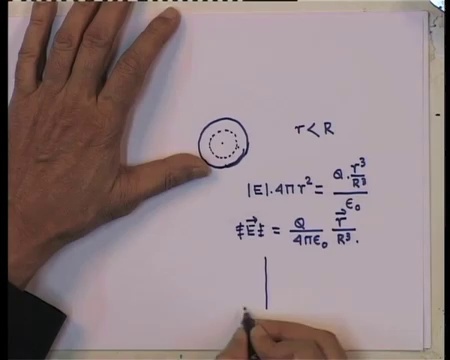 r < R
|E|. 4πr² = Q. r³/R³ / ε₀
E⃗ = Q/4πε₀ r⃗/R³.